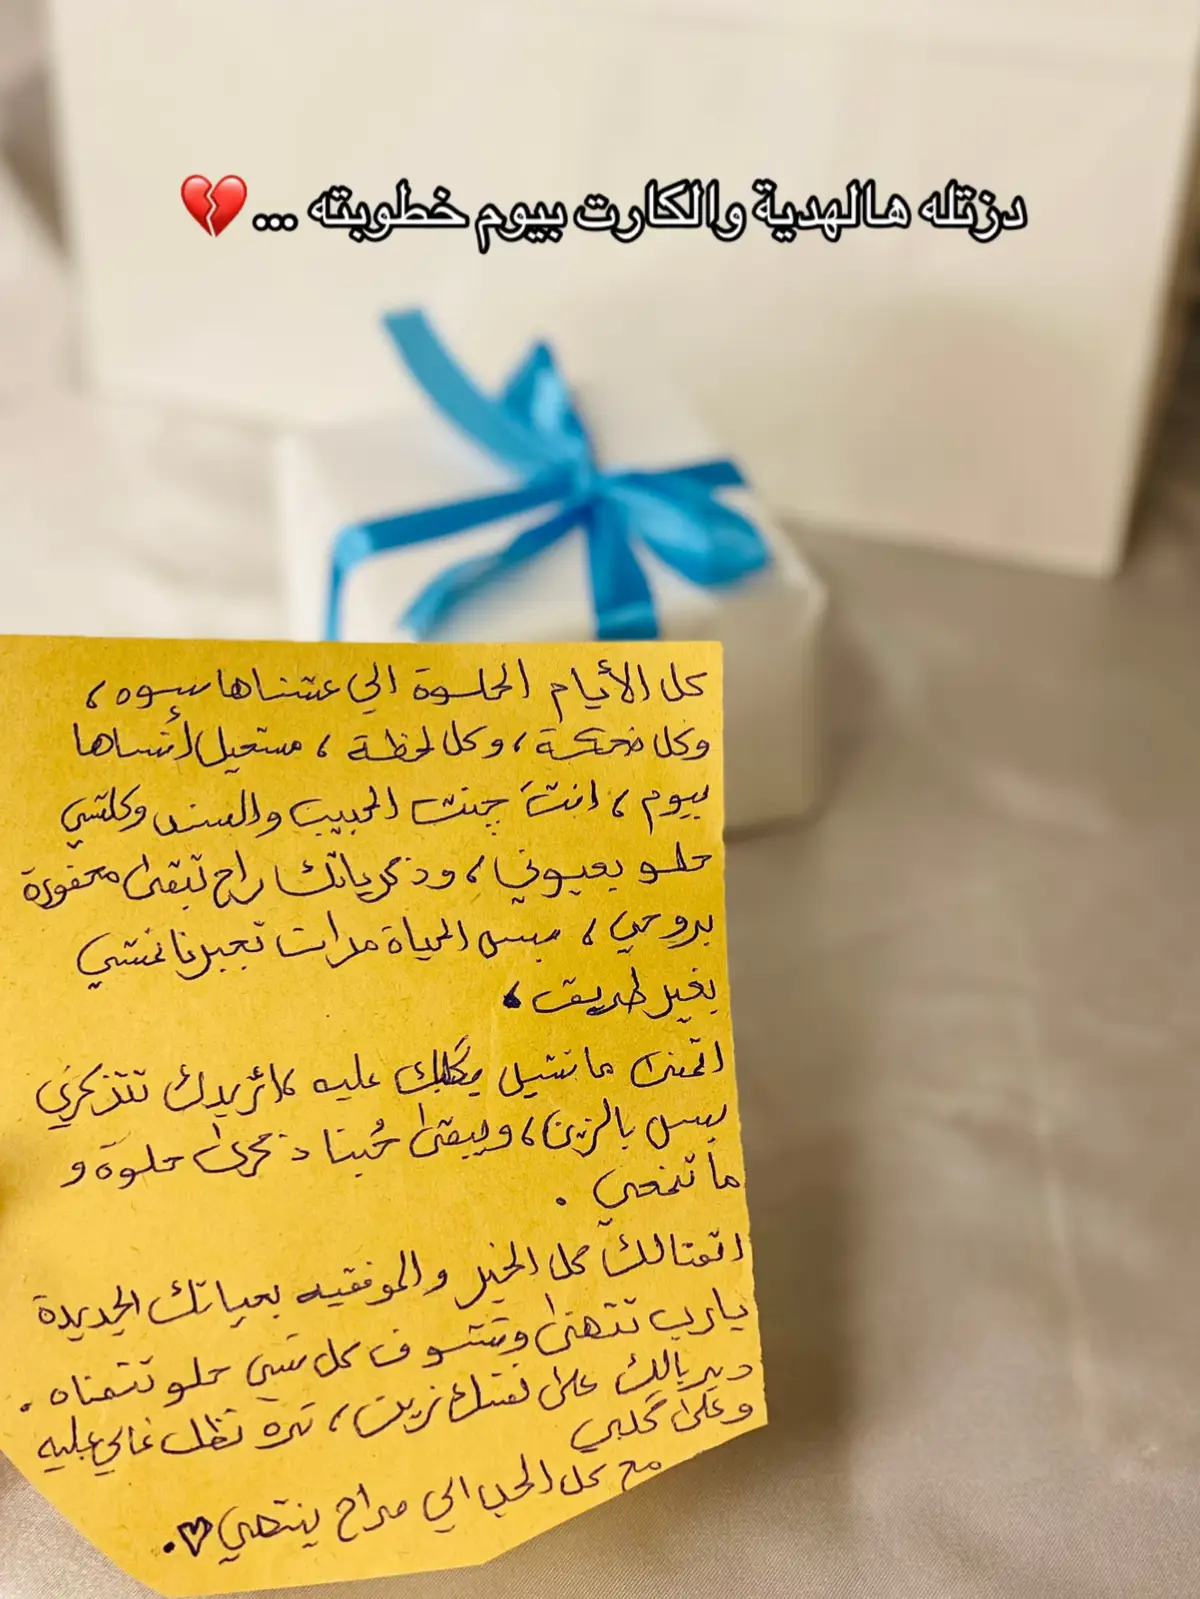 دزتله هالهدية والكارت بيوم خطوبته ... 💔
كل الأيام الحلوة الي عشناها سوه ،
وكل ضحكة ، وكل لحظة ، مستحيل أنساها
بيوم ، انتَ چنت الحبيب والسند وكلشي
حلو بعيوني ، وذكرياتك راح تبقى محفورة
بروحي ، بس الحياة مرات تجبرنا نمشي
بغير طريق ،
اتمنى ماتشيل بگلبك عليه ، اريدك تتذكرني
بس بالزين ، ويبقى حُبنا ذكرى حلوة و
ماتنمحي .
اتمنالك كل الخير والموفقيه بحياتك الجديدة
يارب تتهنى وتشوف كل شي حلو تتمناه .
دير بالك على نفسك زين ، تره تظل غالي عليه
وعلى گلبي
مع كل الحب الي مراح ينتهي ♡.